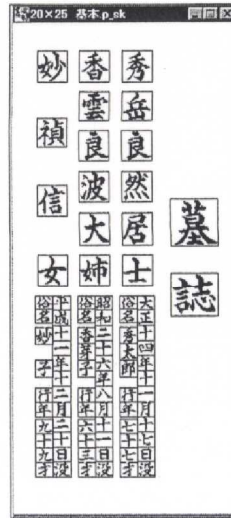 20×25 基本.p_sk
墓誌
秀岳良然居士
大正十四年十一月十七日没
俗名 秀太郎 行年七十七才
香雲良波大姉
昭和二十六年八月十一日没
俗名 香芽子 行年六十三才
妙禎信女
平成十一年十二月二十日没
俗名 妙子 行年九十九才